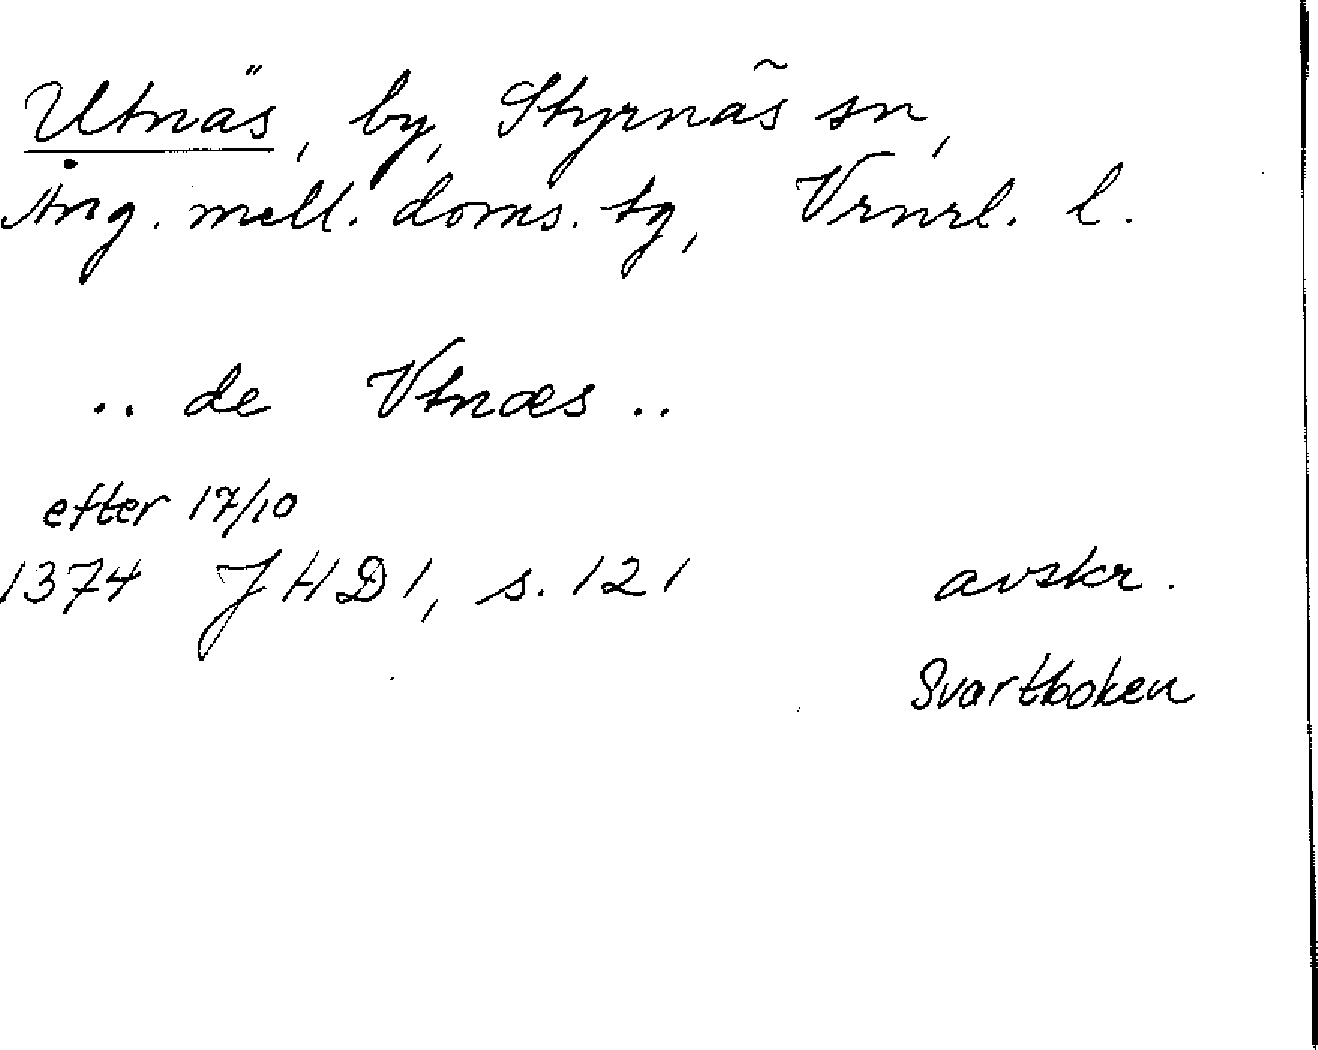 Utnäs, by, Styrnäs sn,
Ång. mell. doms. tg, Vrnrl. l.
.. de Vtnæs ..
efter 17/10
1374 JHD1, s. 121 avskr.
Svartboken